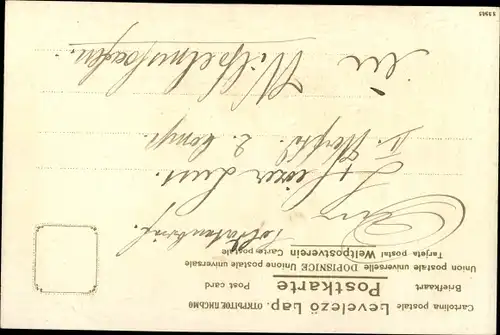 Cartolina postale Levelező Lap. ОТКРЫТОЕ ПИСЬМО
Briefkaart Postkarte Post card
Union postale universelle DOPISNICE Unione postale universale
Tarjeta postal Weltpostverein Carte postale
An
Heizer
II. Werftd. 2. Komp.
in Wilhelmshaven.